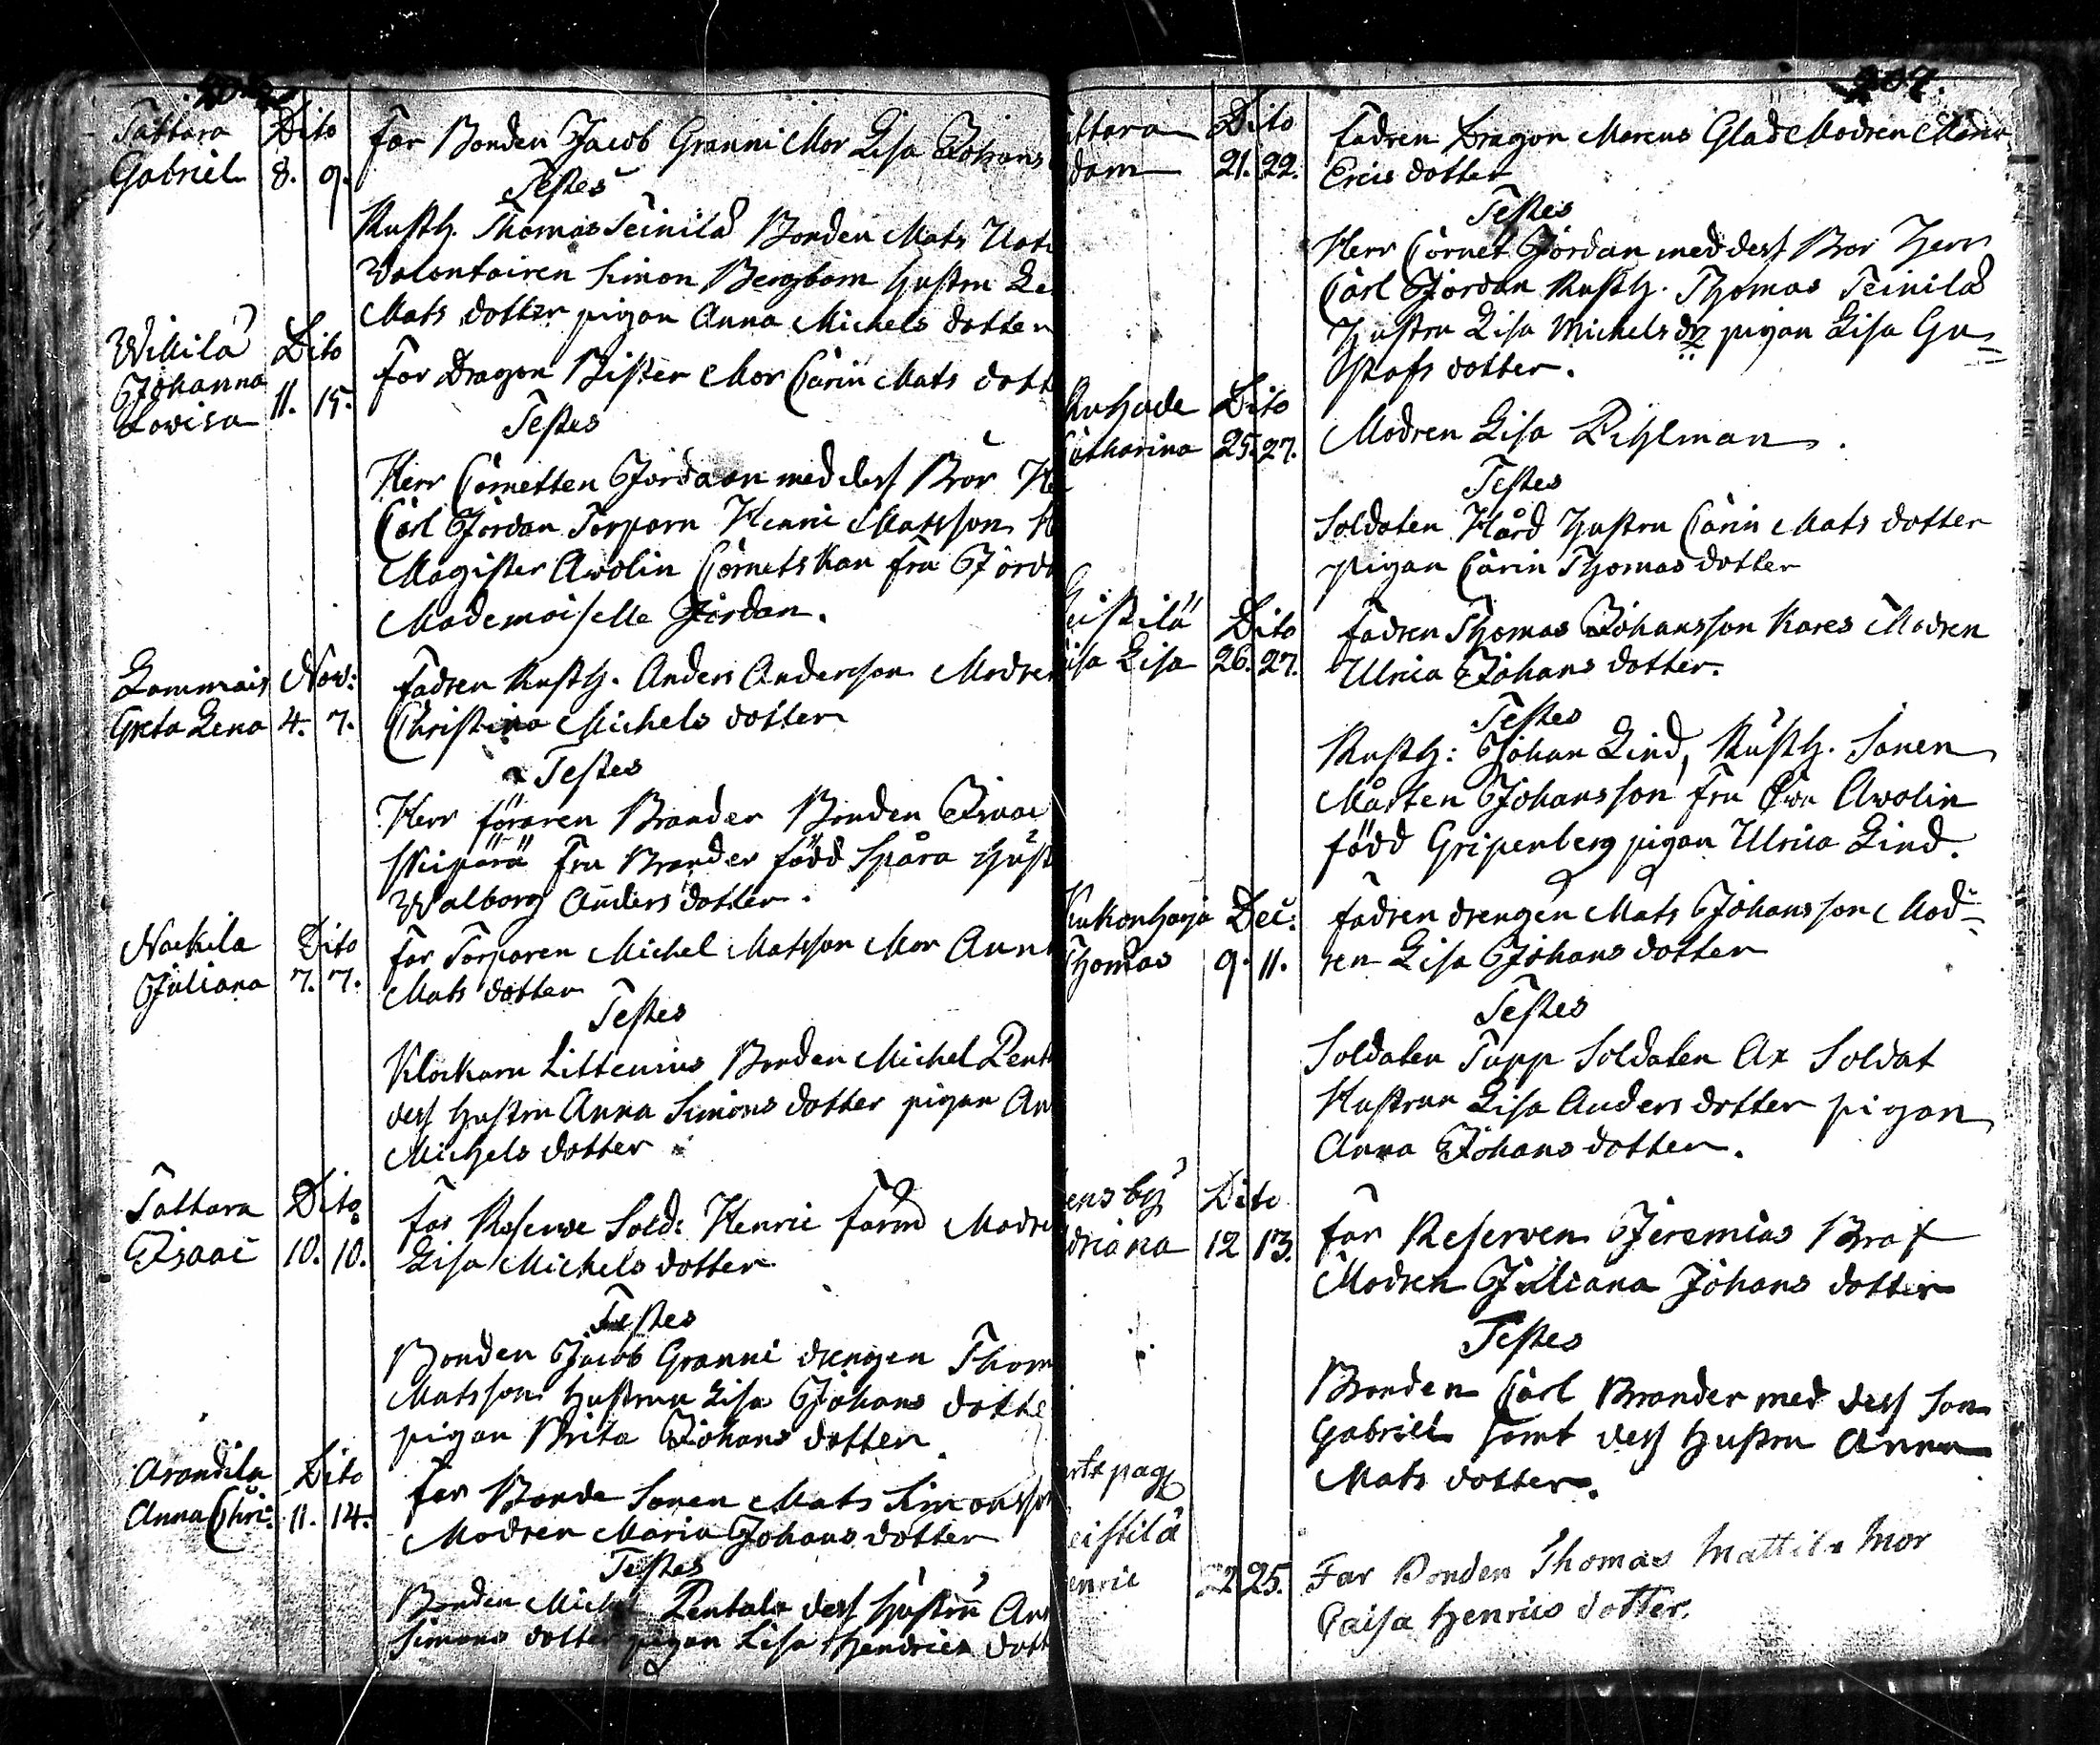 Tattara Dito Far Bonden Jacob Granni Mor Lisa Johans
Gabriel 8. 9.
Testes
Rusth. Thomas Teinilä Bonden Mats
Volontairen Simon Bergbom hustru
Mats dotter pigan Anna Michels dotter
Wikilä Dito Far Dragon Bister Mor Carin Mats dott
Johanna
Lovisa 11. 15.
Testes
Herr Cornetten Jordaan med dess Bror
Carl Jordan Torparn Henric Matsson
Magister Awolin Cornetskan fru Jord
Mademoiselle Jordan.
Lammais Nov: Fadren Rusth. Anders Andersson Modren
Greta Lena 4. 7. Christina Michels dotter
Testes
Herr föraren Brander Bonden Isaac
fru Brander född Spåra hust
Walborg Anders dotter.
Nackila Dito Far Torparen Michel Matsson Mor Anna
Juliana 7. 7. Mats dotter
Testes
Klockarn Littenius Bonden Michel Pent
dess hustru Anna Simons dotter pigan An
Michels dotter
Tattara Dito Far Reserve Sold: Henric Farm Modre
Isaac 10. 10. Lisa Michels dotter
Testes
Bonden Jacob Granni drengen Thom
Matsson hustrun Lisa Johans dotte
pigan Brita Johans dotter
Arandila Dito Far Bonde Sonen Mats Simonsson
Anna Chri: 11. 14. Modren Maria Johans dotter
Testes
Bonden Michel Pentala dess hustru An
Simons dotter pigan Lisa Hendrics dott
ttara Dito Fadren Dragon Marcus Glad Modren
dam 21. 22. Erics dotter
Testes
Herr Cornet Jordan med dess Bror Herr
Carl Jordan Rusth. Thomas Teinilä
hustru Lisa Michels dr pigan Lisa Gu=
stafs dotter.
Dito Modren Lisa Pihlman.
Catharina 25. 27.
Testes
Soldaten Hård hustru Carin Mats dotter
pigan Carin Thomas dotter
eistilä Dito Fadren Thomas Johansson Kares Modren
isa Lisa 26. 27. Ulrica Johans dotter.
Testes
Rusth: Johan Lind, Rusth. Sonen
Mårten Johansson fru Ewa Awolin
född Gripenberg pigan Ulrica Lind.
Kukonharja Dec: Fadren drengen Mats Johansson Mod=
Thomas 9. 11. ren Lisa Johans dotter
Testes
Soldaten Tapp Soldaten Ax Soldat
Hustrun Lisa Anders dotter pigan
Anna Johans dotter.
ensby Dito Far Reserven Jeremias Braf
driana 12 13. Modren Juliana Johans dotter
Testes
Bonden Carl Brander med dess Son
Gabriel samt dess hustru Anna
Mats dotter.
pag
eistilä
enric 22 25. Far Bonden Thomas Mattila Mor
Caisa Henrics dotter.